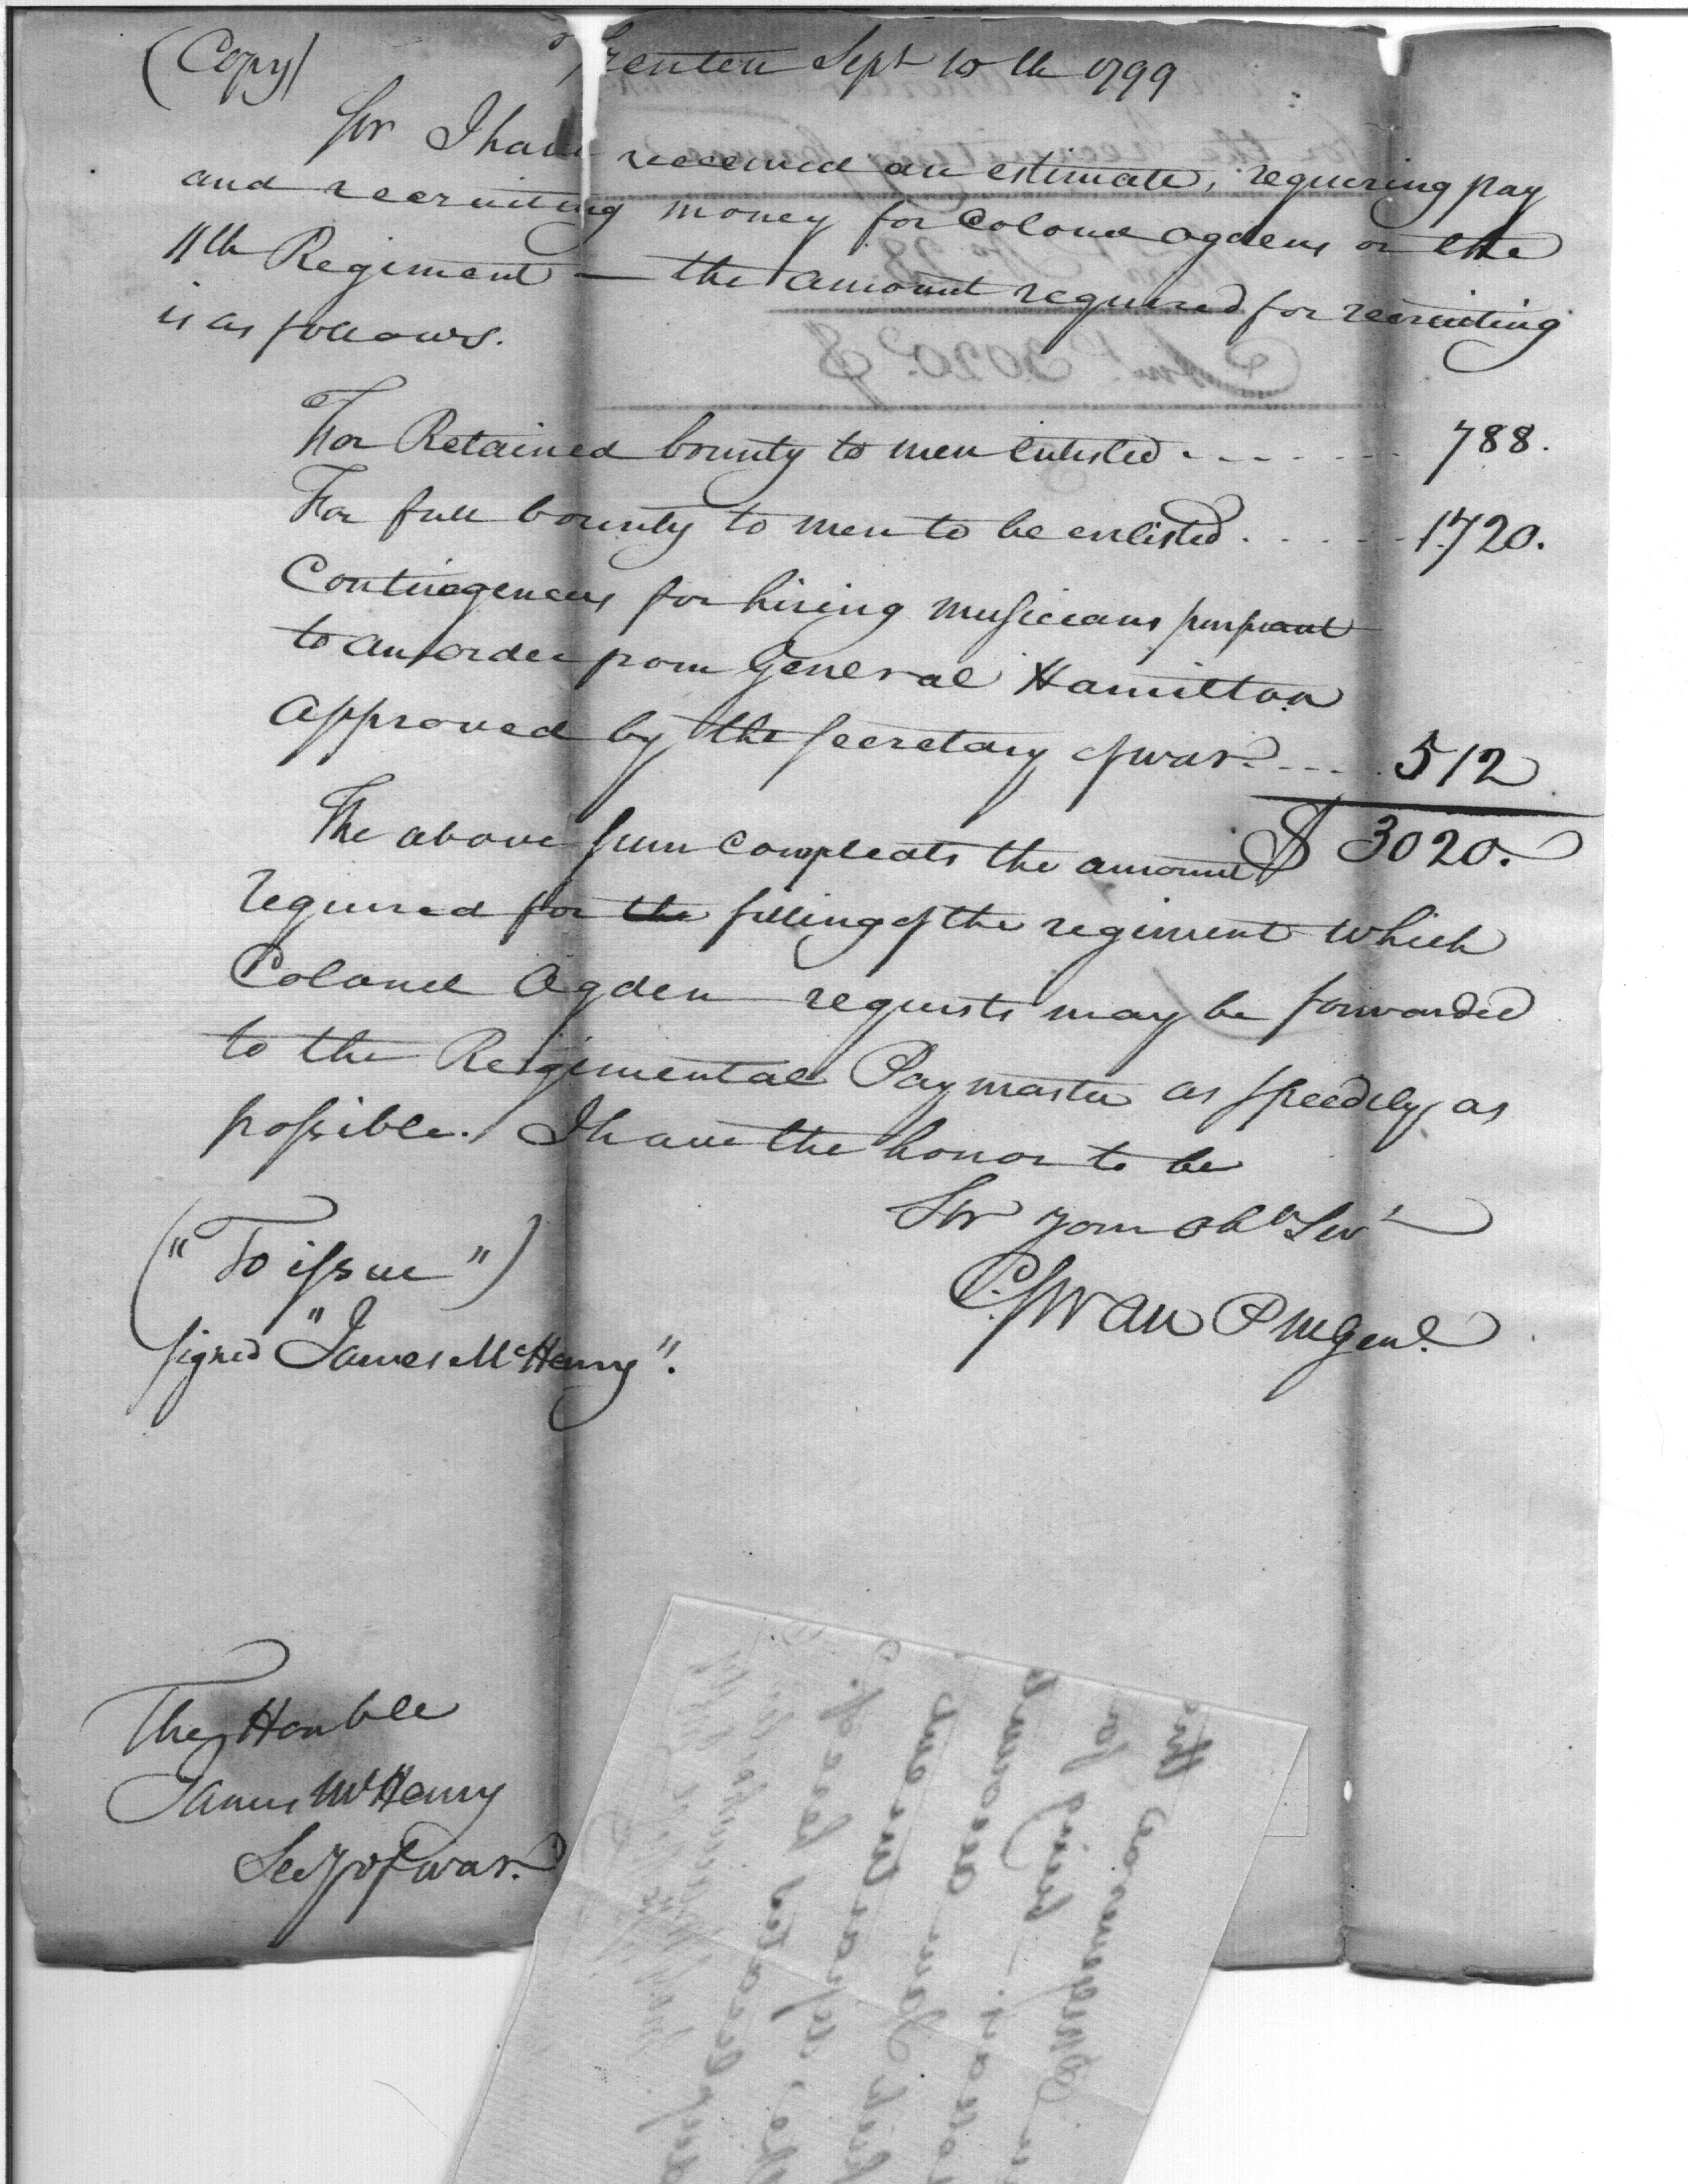 (Copy)
Trenton Sept 10th 1799
Sir I have received an estimate, requiring pay
and recruiting money for Colonel Ogdens or the
11th Regiment — the amount required for recruiting
is as follows.
For Retained bounty to men enlisted . . . . . . 788.
For full bounty to men to be enlisted . . . . . 1720.
Contingences for hiring musicians pursuant
to an order from General Hamilton
approved by the Secretary of war. . . . 512
$ 3020.
The above sum compleats the amount
required for the filling of the regiment which
Colonel Ogden requests may be forwarded
to the Regimental Paymaster as speedily as
possible. I have the honor to be
Sir your Obt Sert
C. Swan P M Genl.
("To issue")
signed "James McHenry".
The Honble
James McHenry
Secy of war.